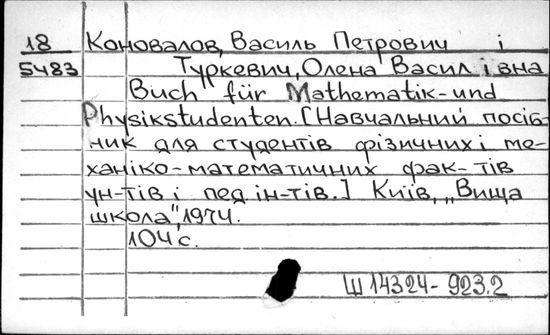 18 Коновалов, Василь Петрович і
5483 Туркевич, Олена Василівна
Buch für Mathematik- und
Physikstudenten. [Навчальний посіб-
ник для студентів фізичних і ме-
ханіко-математичних фак-тів
ун-тів і пед ін-тів.] Київ, „Вища
школа", 1974.
104 с.
Ш 14324-923.2